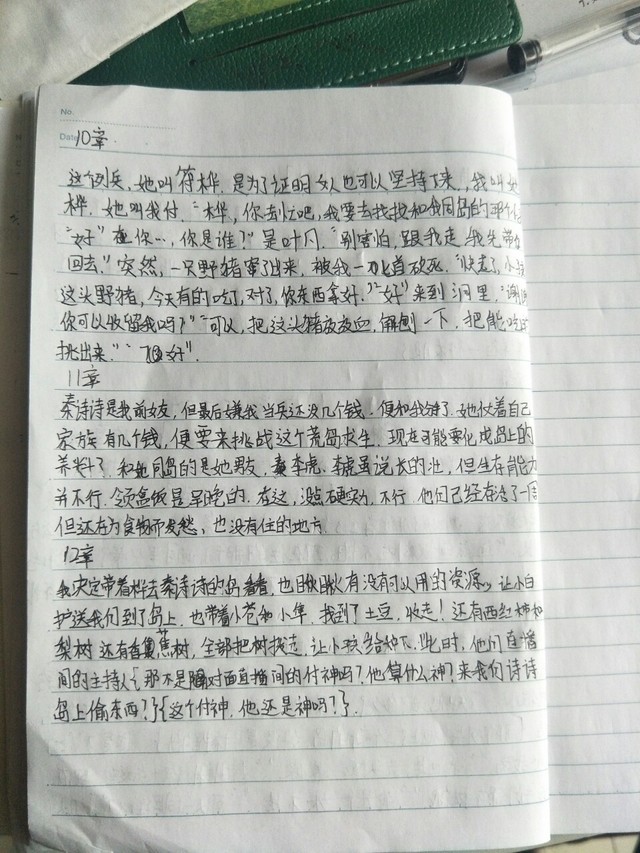 No.
Date 10章
这个列兵,她叫符桦.是为了证明女人也可以坚持下来.,我叫她
桦.她叫我付."桦,你去忙吧,我要去找找和我同岛的那个
"好"在你…,你是谁?"是叶凡."别害怕,跟我走,我先带你
回去."突然,一只野猪窜了出来,被我一匕首砍死."快走了,小
这头野猪,今天有的吃了,对了,你东西拿好.""好"来到洞里,"谢谢
你可以收留我吗?""可以,把这头猪放放血,解刨一下.把能吃的
挑出来.""很好".
11章
秦诗诗是我前女友,但最后嫌我当兵还没几个钱.便和我分手了.她仗着自己
家族有几个钱,便要来挑战这个荒岛求生.现在可能要化成岛上的
养料了.和她同岛的是她男友,李虎.李虎虽说长的壮,但生存能力
并不行.领盒饭是早晚的.在这,没点硬实力,不行.他们已经存活了一周
但还在为食物而发愁、也没有住的地方.
12章
我决定带着桦去秦诗诗的岛看看,也瞅瞅有没有可以用的资源.让小白
护送我们到了岛上,也带着小苍和小隼,找到了土豆,收走!还有西红柿和
梨树还有香蕉树,全部把树找走,让小孩给种下.此时,他们直播
间的主持人{那不是隔对面直播间的付神吗?他算什么神?来我们诗诗
岛上偷东西?}{这个付神.他还是神吗?}.